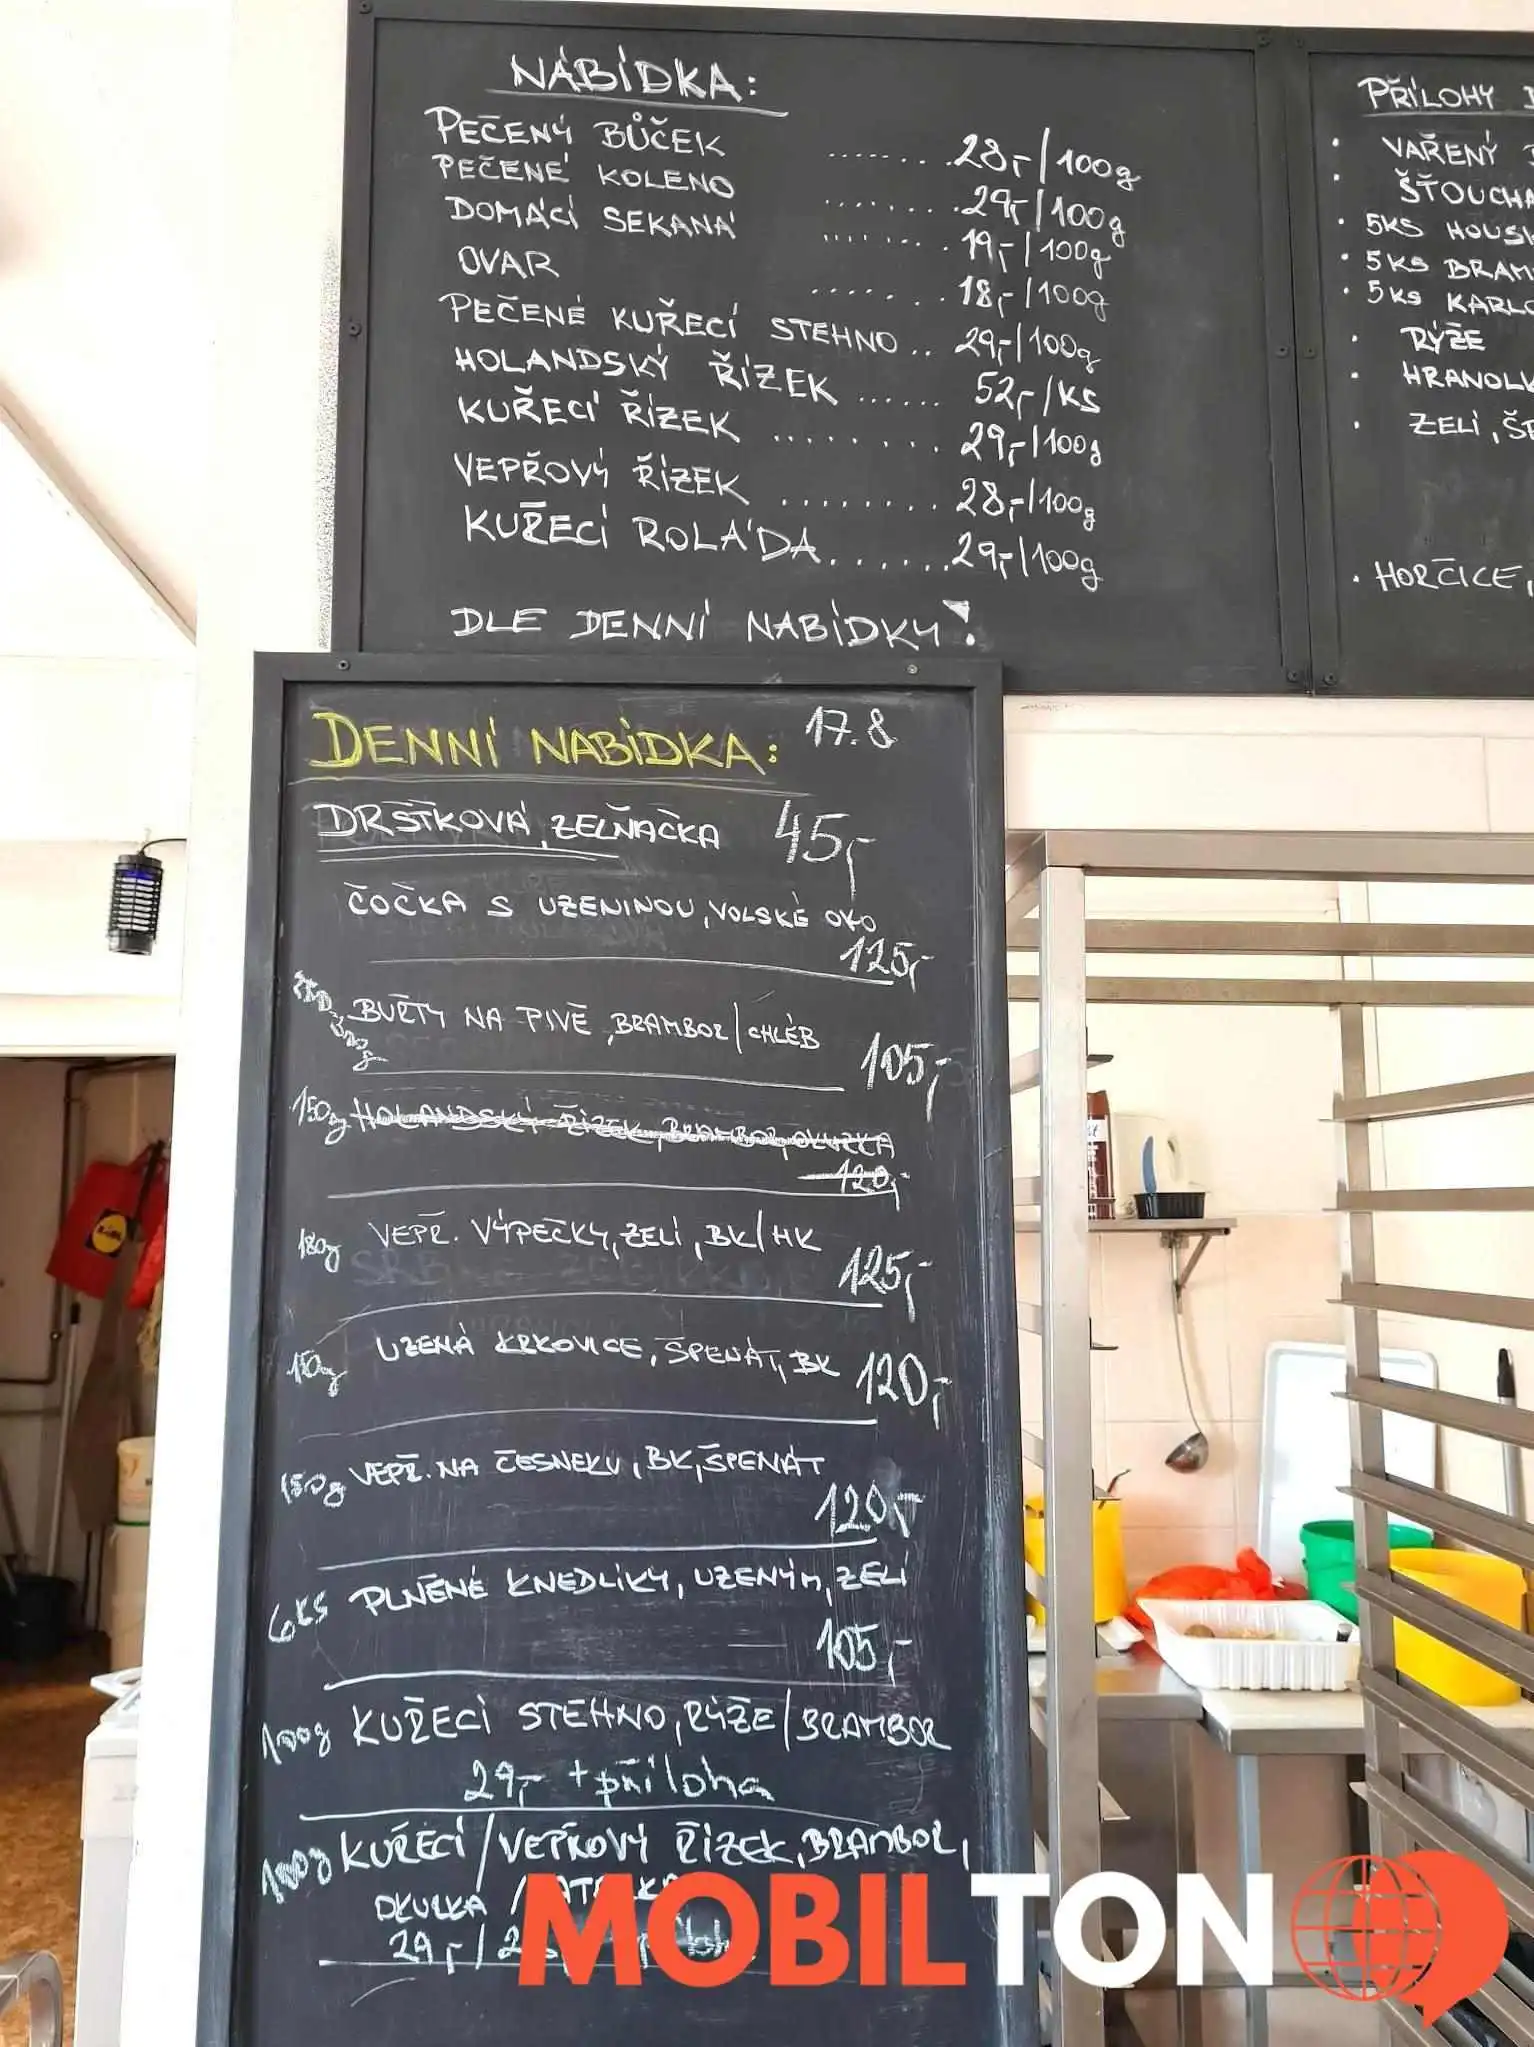 NABÍDKA:
PEČENÝ BŮČEK ........ 28,-/100g
PEČENÉ KOLENO ........ 29,-/100g
DOMÁCÍ SEKANÁ ........ 19,-/100g
OVAR ........ 18,-/100g
PEČENÉ KUŘECÍ STEHNO .. 29,-/100g
HOLANDSKÝ ŘÍZEK ...... 52,-/KS
KUŘECÍ ŘÍZEK ........ 29,-/100g
VEPŘOVÝ ŘÍZEK ........ 28,-/100g
KUŘECÍ ROLÁDA ....... 29,-/100g
DLE DENNÍ NABÍDKY!
PŘÍLOHY
• VAŘENÝ
• ŠŤOUCHA
• 5KS HOUSK
• 5KS BRAM
• 5KS KARLO
• RÝŽE
• HRANOLK
• ZELÍ, ŠP
• HOŘČICE,
DENNÍ NABÍDKA: 17.8
DRŠŤKOVÁ, ZELŇAČKA 45,-
ČOČKA S UZENINOU, VOLSKÉ OKO
125,-
BUŘTY NA PIVĚ, BRAMBOR/CHLÉB
105,-
150g HOLANDSKÝ ŘÍZEK, BRAMBOR, OKURKA
120,-
180g VEPŘ. VÝPEČKY, ZELÍ, BK/HK
125,-
UZENÁ KRKOVICE, ŠPENÁT, BK 120,-
150g VEPŘ. NA ČESNEKU, BK, ŠPENÁT
120,-
6KS PLNĚNÉ KNEDLÍKY, UZENÝM, ZELÍ
105,-
100g KUŘECÍ STEHNO, RÝŽE/BRAMBOR
29,- + příloha
100g KUŘECÍ/VEPŘOVÝ ŘÍZEK, BRAMBOR,
OKURKA /
29,-/
MOBILTON